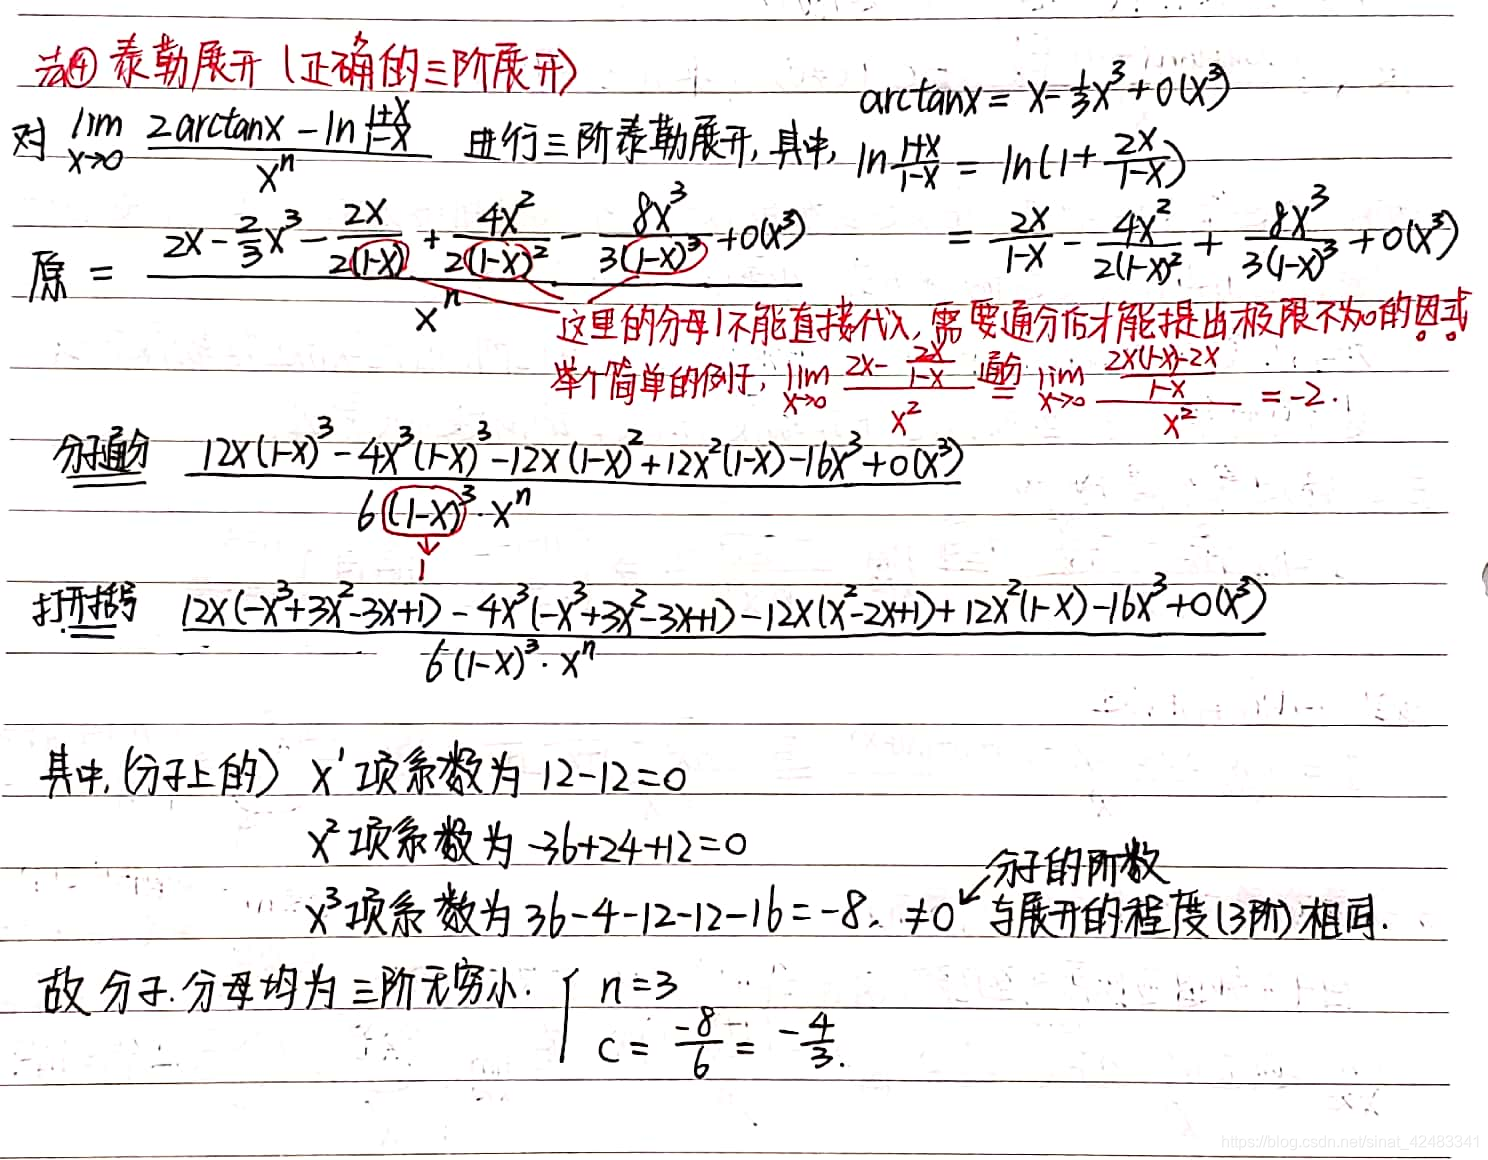 法④ 泰勒展开（正确的三阶展开）
对 lim x→0 (2arctanx - ln (1+x)/(1-x)) / x^n 进行三阶泰勒展开, 其中, arctanx = x - 1/3 x^3 + o(x^3)
ln (1+x)/(1-x) = ln(1 + 2x/(1-x))
= 2x/(1-x) - 4x^2/(2(1-x)^2) + 8x^3/(3(1-x)^3) + o(x^3)
原 = (2x - 2/3 x^3 - 2x/(2(1-x)) + 4x^2/(2(1-x)^2) - 8x^3/(3(1-x)^3) + o(x^3)) / x^n
这里的分母1不能直接代入, 需要通分后才能提出极限不为0的因式
举个简单的例子, lim x→0 (2x - 2x/(1-x)) / x^2 通分 = lim x→0 ((2x(1-x)-2x)/(1-x)) / x^2 = -2.
分子通分 (12x(1-x)^3 - 4x^3(1-x)^3 - 12x(1-x)^2 + 12x^2(1-x) - 16x^3 + o(x^3)) / (6(1-x)^3 · x^n)
↓
1
打开括号 (12x(-x^3+3x^2-3x+1) - 4x^3(-x^3+3x^2-3x+1) - 12x(x^2-2x+1) + 12x^2(1-x) - 16x^3 + o(x^3)) / (6(1-x)^3 · x^n)
其中, (分子上的) x^1 项系数为 12-12=0
x^2 项系数为 -36+24+12=0
x^3 项系数为 36-4-12-12-16=-8. ≠0 ↙ 分子的阶数
与展开的程度(3阶)相同.
故 分子.分母均为三阶无穷小. { n=3
c = -8/6 = -4/3.
https://blog.csdn.net/sinat_42483341